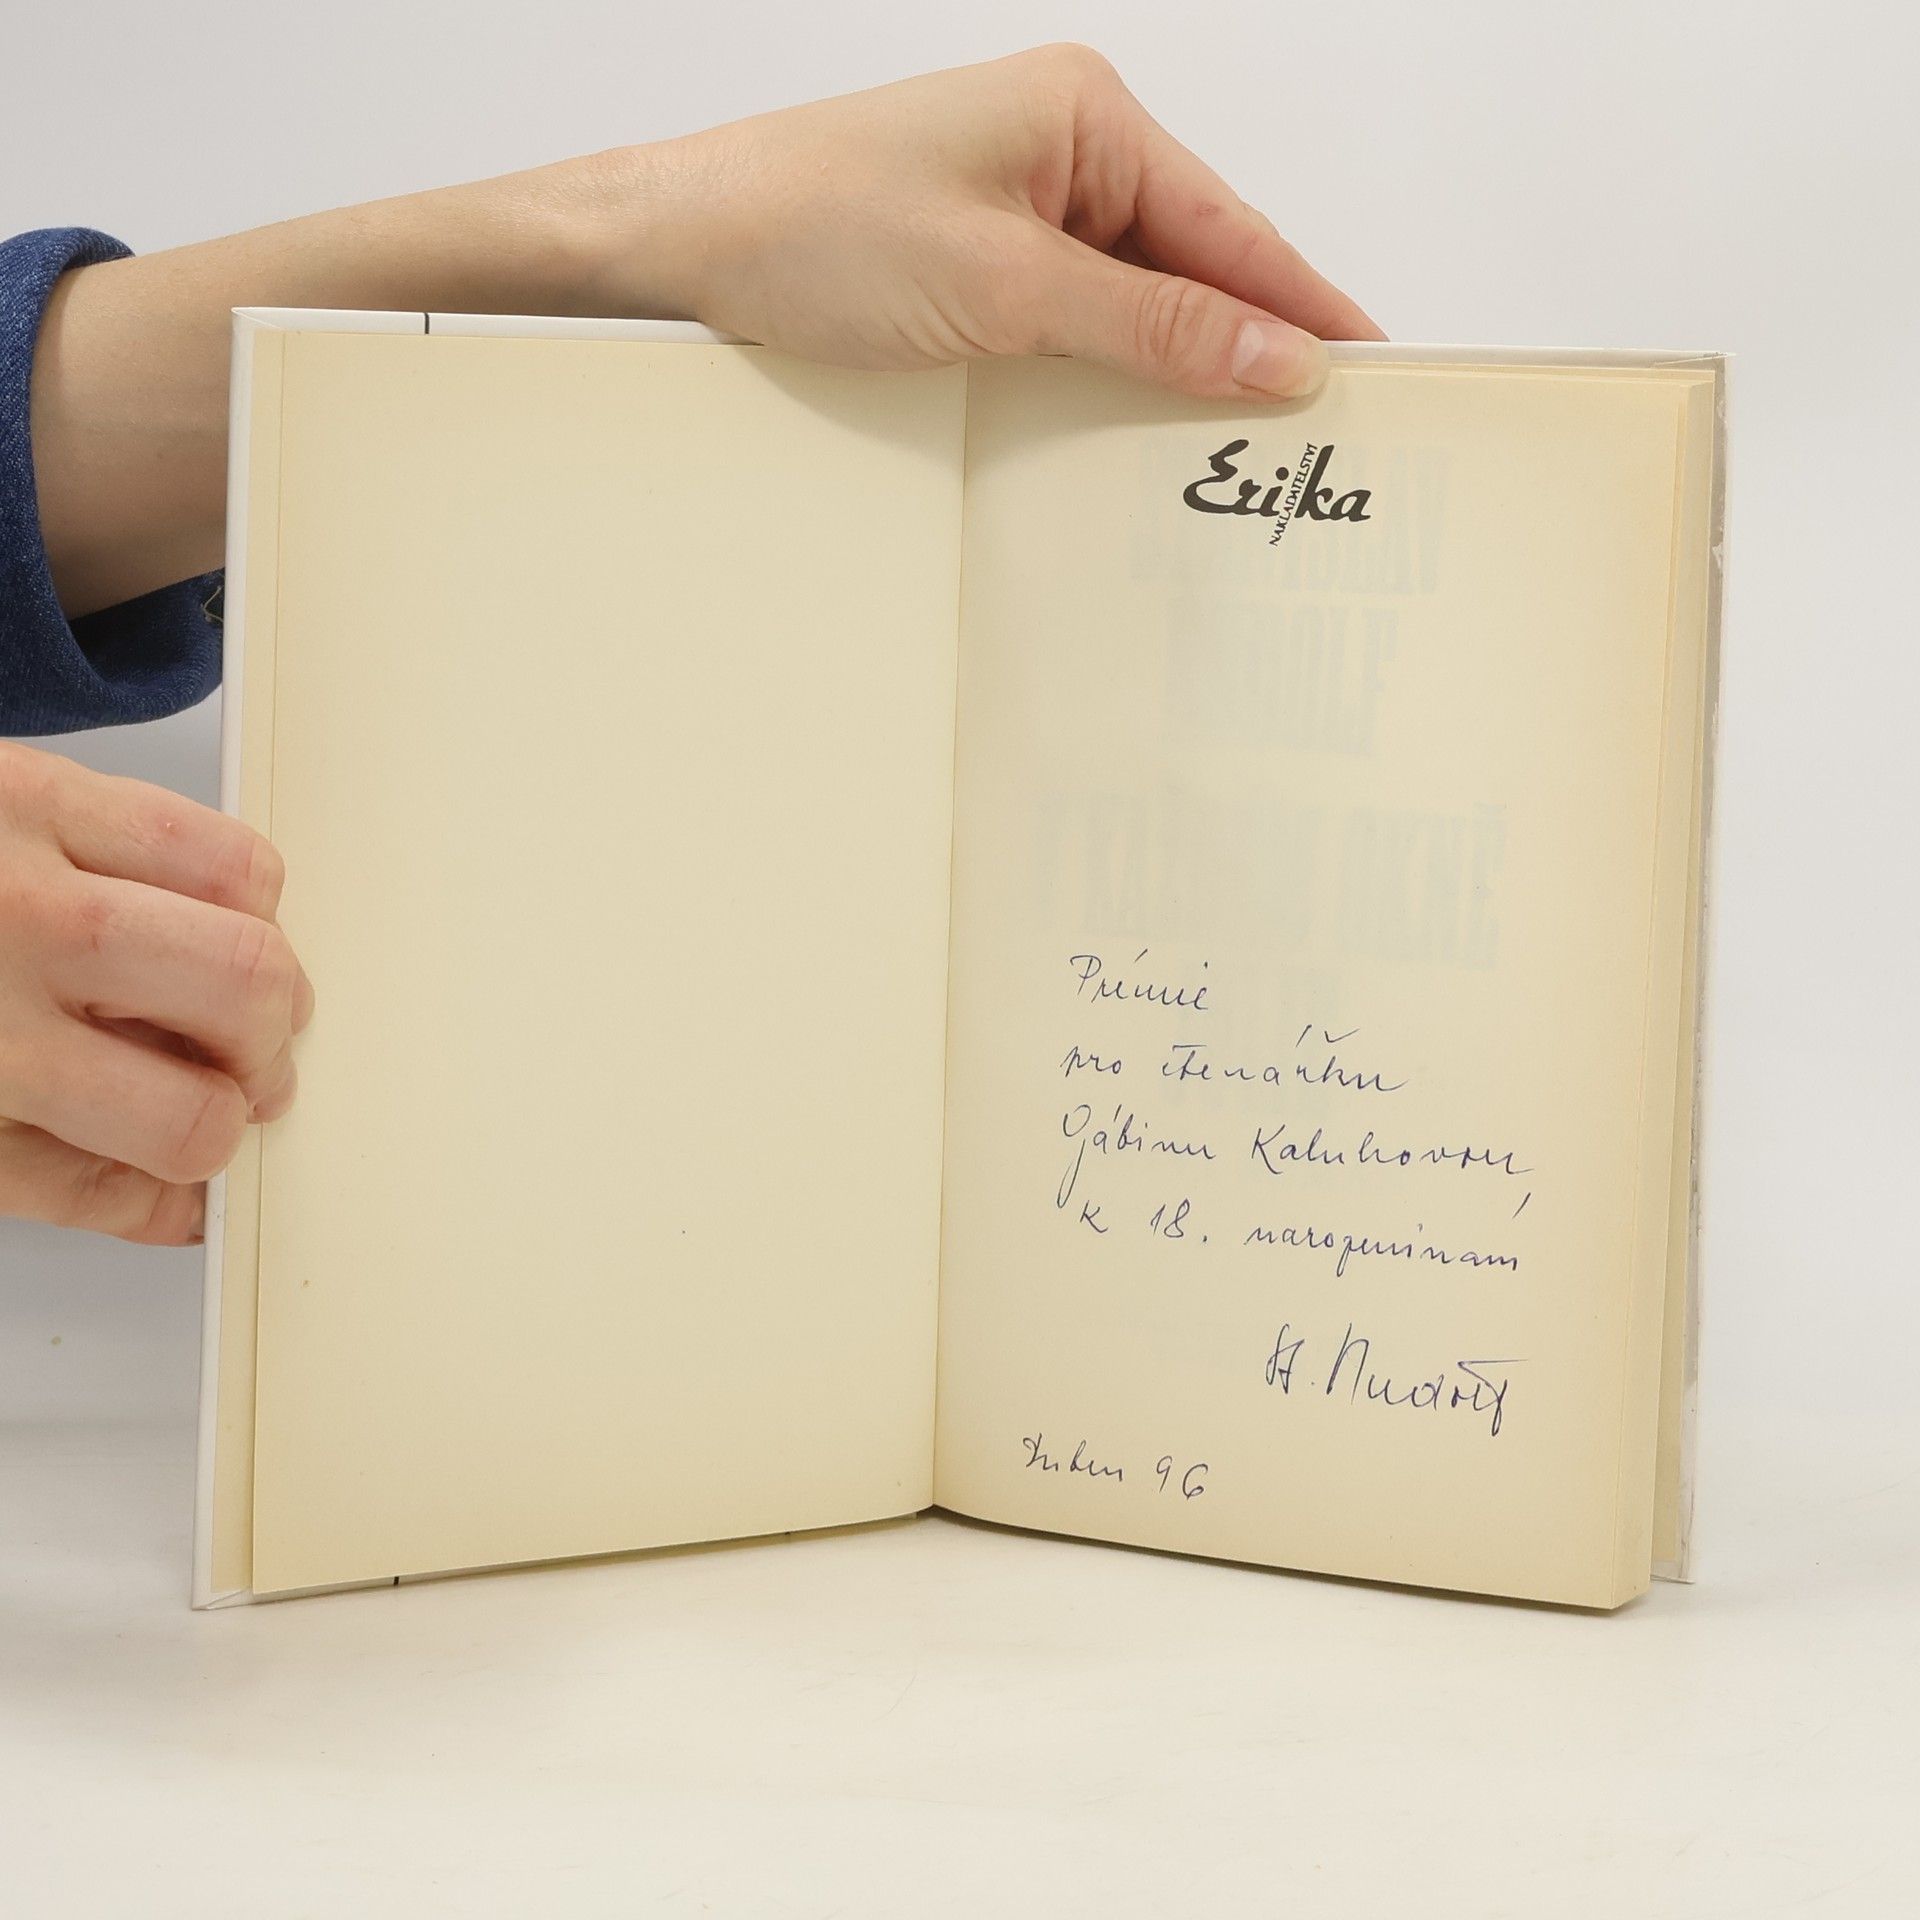 Erika
NAKLADATELSTVÍ
Prémie
pro čtenářku
Gábinu Kaluhovou
k 18. narozeninám
St. Rudolf
Duben 96